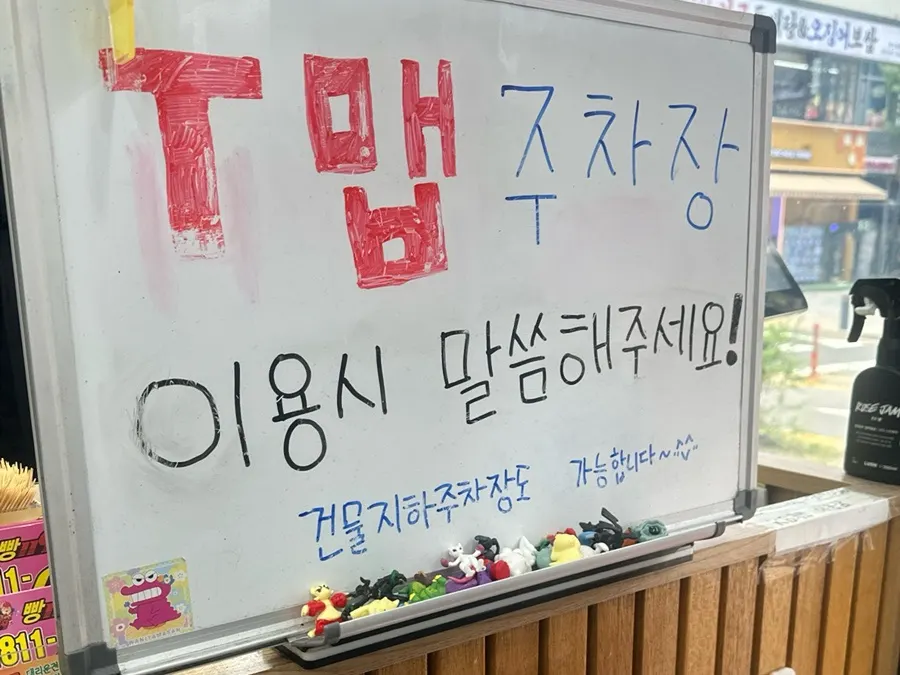 T맵 주차장
이용시 말씀해주세요!
건물지하주차장도 가능합니다~^^
빵
11-
빵
811-
대리운전
ROSE JAM